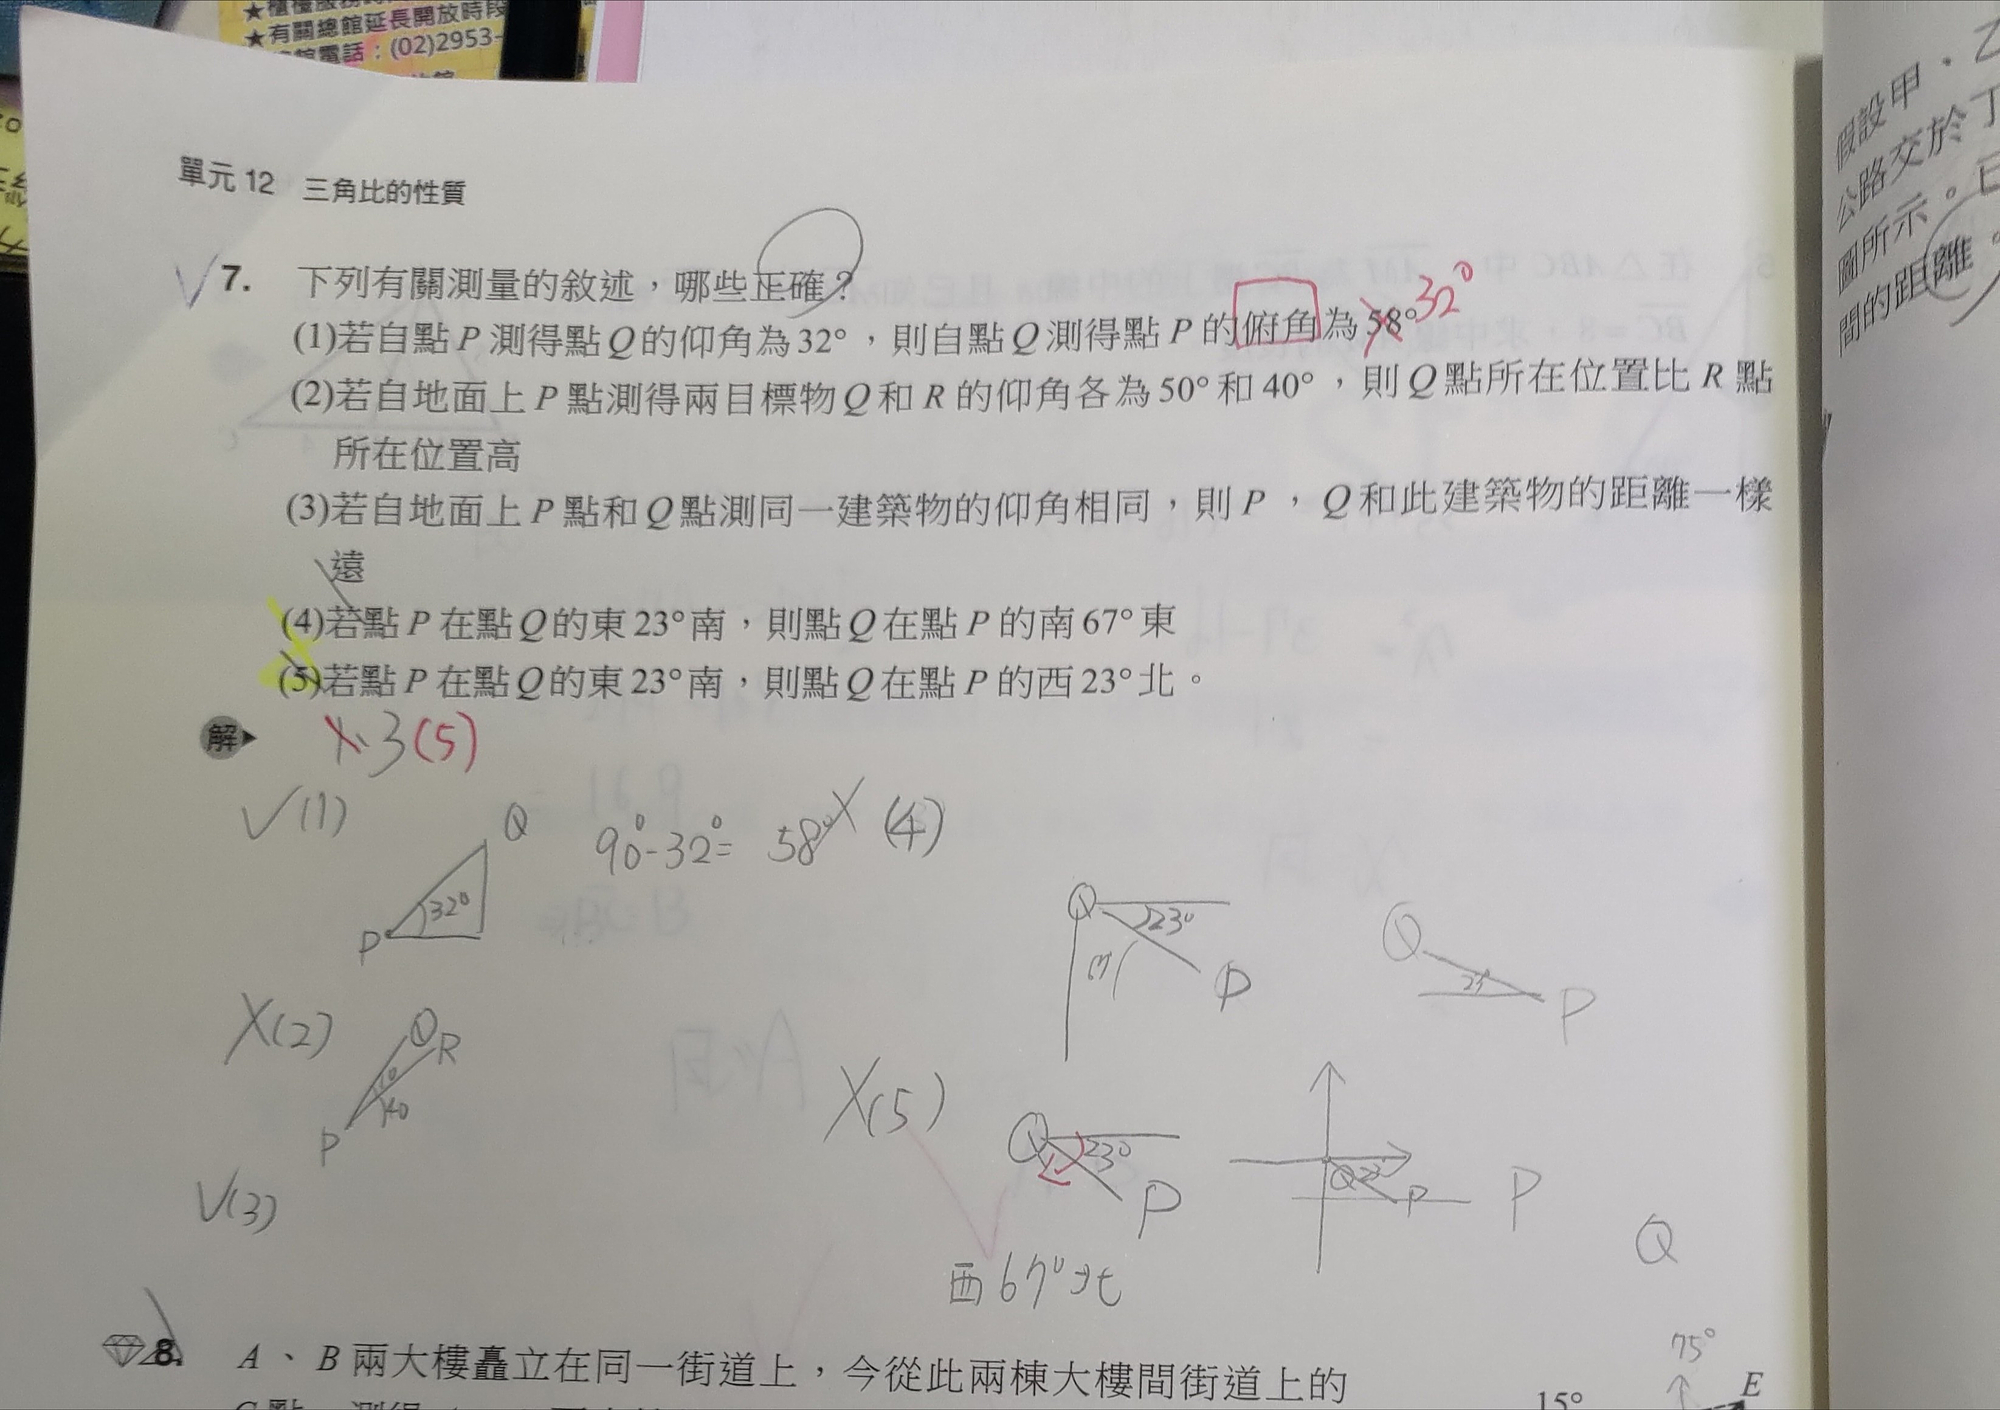 ★有關總館延長開放時段
電話：(02)2953-
單元 12 三角比的性質
7. 下列有關測量的敘述，哪些正確？
(1)若自點 P 測得點 Q 的仰角為 32°，則自點 Q 測得點 P 的俯角為 58° 32°
(2)若自地面上 P 點測得兩目標物 Q 和 R 的仰角各為 50° 和 40°，則 Q 點所在位置比 R 點
所在位置高
(3)若自地面上 P 點和 Q 點測同一建築物的仰角相同，則 P，Q 和此建築物的距離一樣
遠
(4)若點 P 在點 Q 的東 23° 南，則點 Q 在點 P 的南 67° 東
(5)若點 P 在點 Q 的東 23° 南，則點 Q 在點 P 的西 23° 北。
解 3 (5)
(1) Q 90°-32°= 58° X (4)
32°
P
Q 23° P
Q P
X(2) Q R
40
P
X(5)
Q 23° P
Q P
P
Q
V(3)
西67°北
75°
8. A、B 兩大樓矗立在同一街道上，今從此兩棟大樓間街道上的
15° E
假設甲、乙
公路交於丁
圖所示。已
間的距離